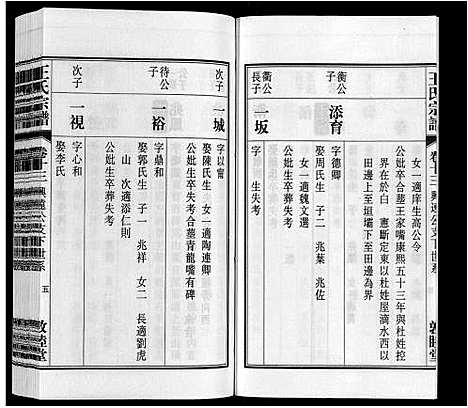 王氏宗譜
卷十三 興道公支下世系
敦睦堂
女一適庠生高公令
公妣卒合墓王家嘴康熙五十三年與杜姓控
界在於白 憲斷定東以杜姓屋滴水西以
田邊上至垣壩下至田邊為界
衢公
子
添育
字德卿
娶周氏生 子二 兆葉 兆佐
女一適魏文選
公妣生卒葬失考
衢公
長子
一坂
字 生失考
次子
一城
字以甯
娶陳氏生 女一適陶連卿
公妣生卒失考合墓青龍嘴有碑
待公
子
一裕
字鼎和
娶郭氏生 子一 兆祥 女二 長適劉虎
山 次適添仁則
公妣生卒葬失考
次子
一視
字心和
娶李氏
王氏宗譜
卷十三 興道公支下世系
五
敦睦堂